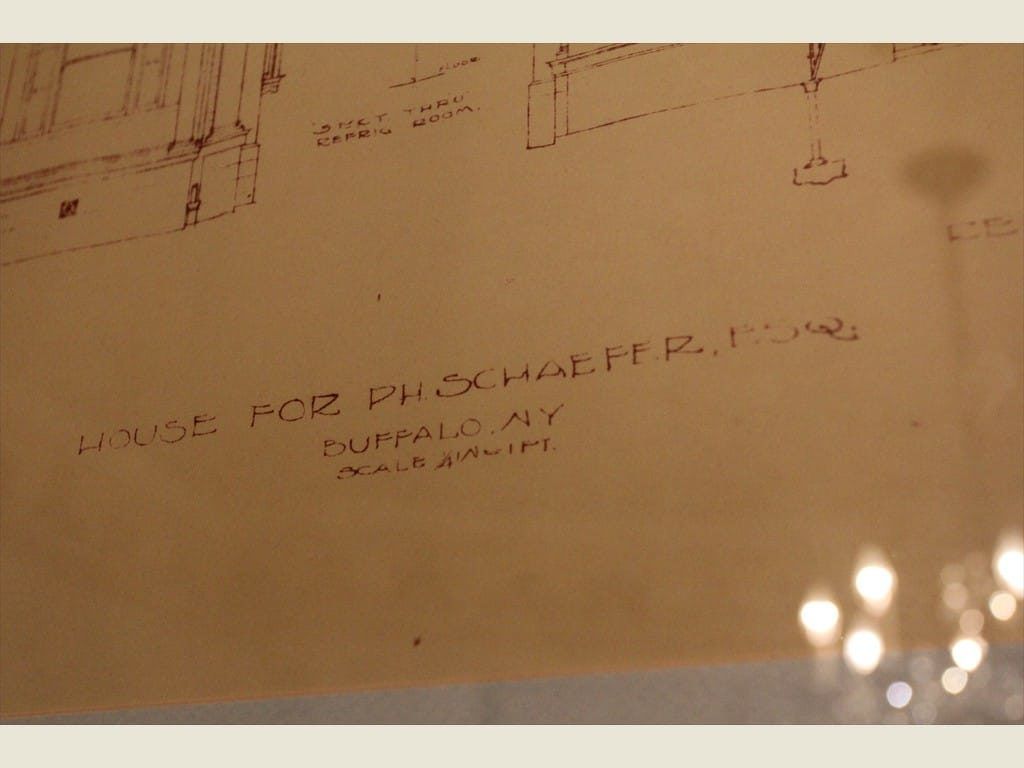 FLOOR
SECT. THRU
REFRIG ROOM.
HOUSE FOR PH. SCHAEFER, ESQ.
BUFFALO, NY
SCALE 1/4 IN = 1 FT.